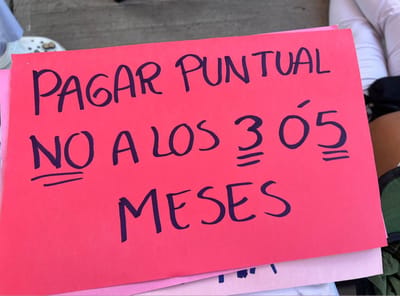 PAGAR PUNTUAL
NO A LOS 3 Ó 5
MESES